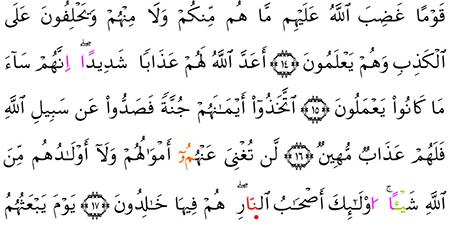 قَوْمًا غَضِبَ اللَّهُ عَلَيْهِم مَّا هُم مِّنكُمْ وَلَا مِنْهُمْ وَيَحْلِفُونَ عَلَى
الْكَذِبِ وَهُمْ يَعْلَمُونَ ﴿١٤﴾ أَعَدَّ اللَّهُ لَهُمْ عَذَابًا شَدِيدًا ۖ اِنَّهُمْ سَآءَ
مَا كَانُوا۟ يَعْمَلُونَ ﴿١٥﴾ ٱتَّخَذُوٓا۟ أَيْمَـٰنَهُمْ جُنَّةً فَصَدُّوا۟ عَن سَبِيلِ اللَّهِ
فَلَهُمْ عَذَابٌ مُّهِينٌ ﴿١٦﴾ لَّن تُغْنِىَ عَنْهُمُۥٓ أَمْوَٰلُهُمْ وَلَآ أَوْلَـٰدُهُم مِّنَ
اللَّهِ شَيْـًٔا ۚ اوْلَـٰٓئِكَ أَصْحَـٰبُ النّارِ ۖ هُمْ فِيهَا خَـٰلِدُونَ ﴿١٧﴾ يَوْمَ يَبْعَثُهُمُ